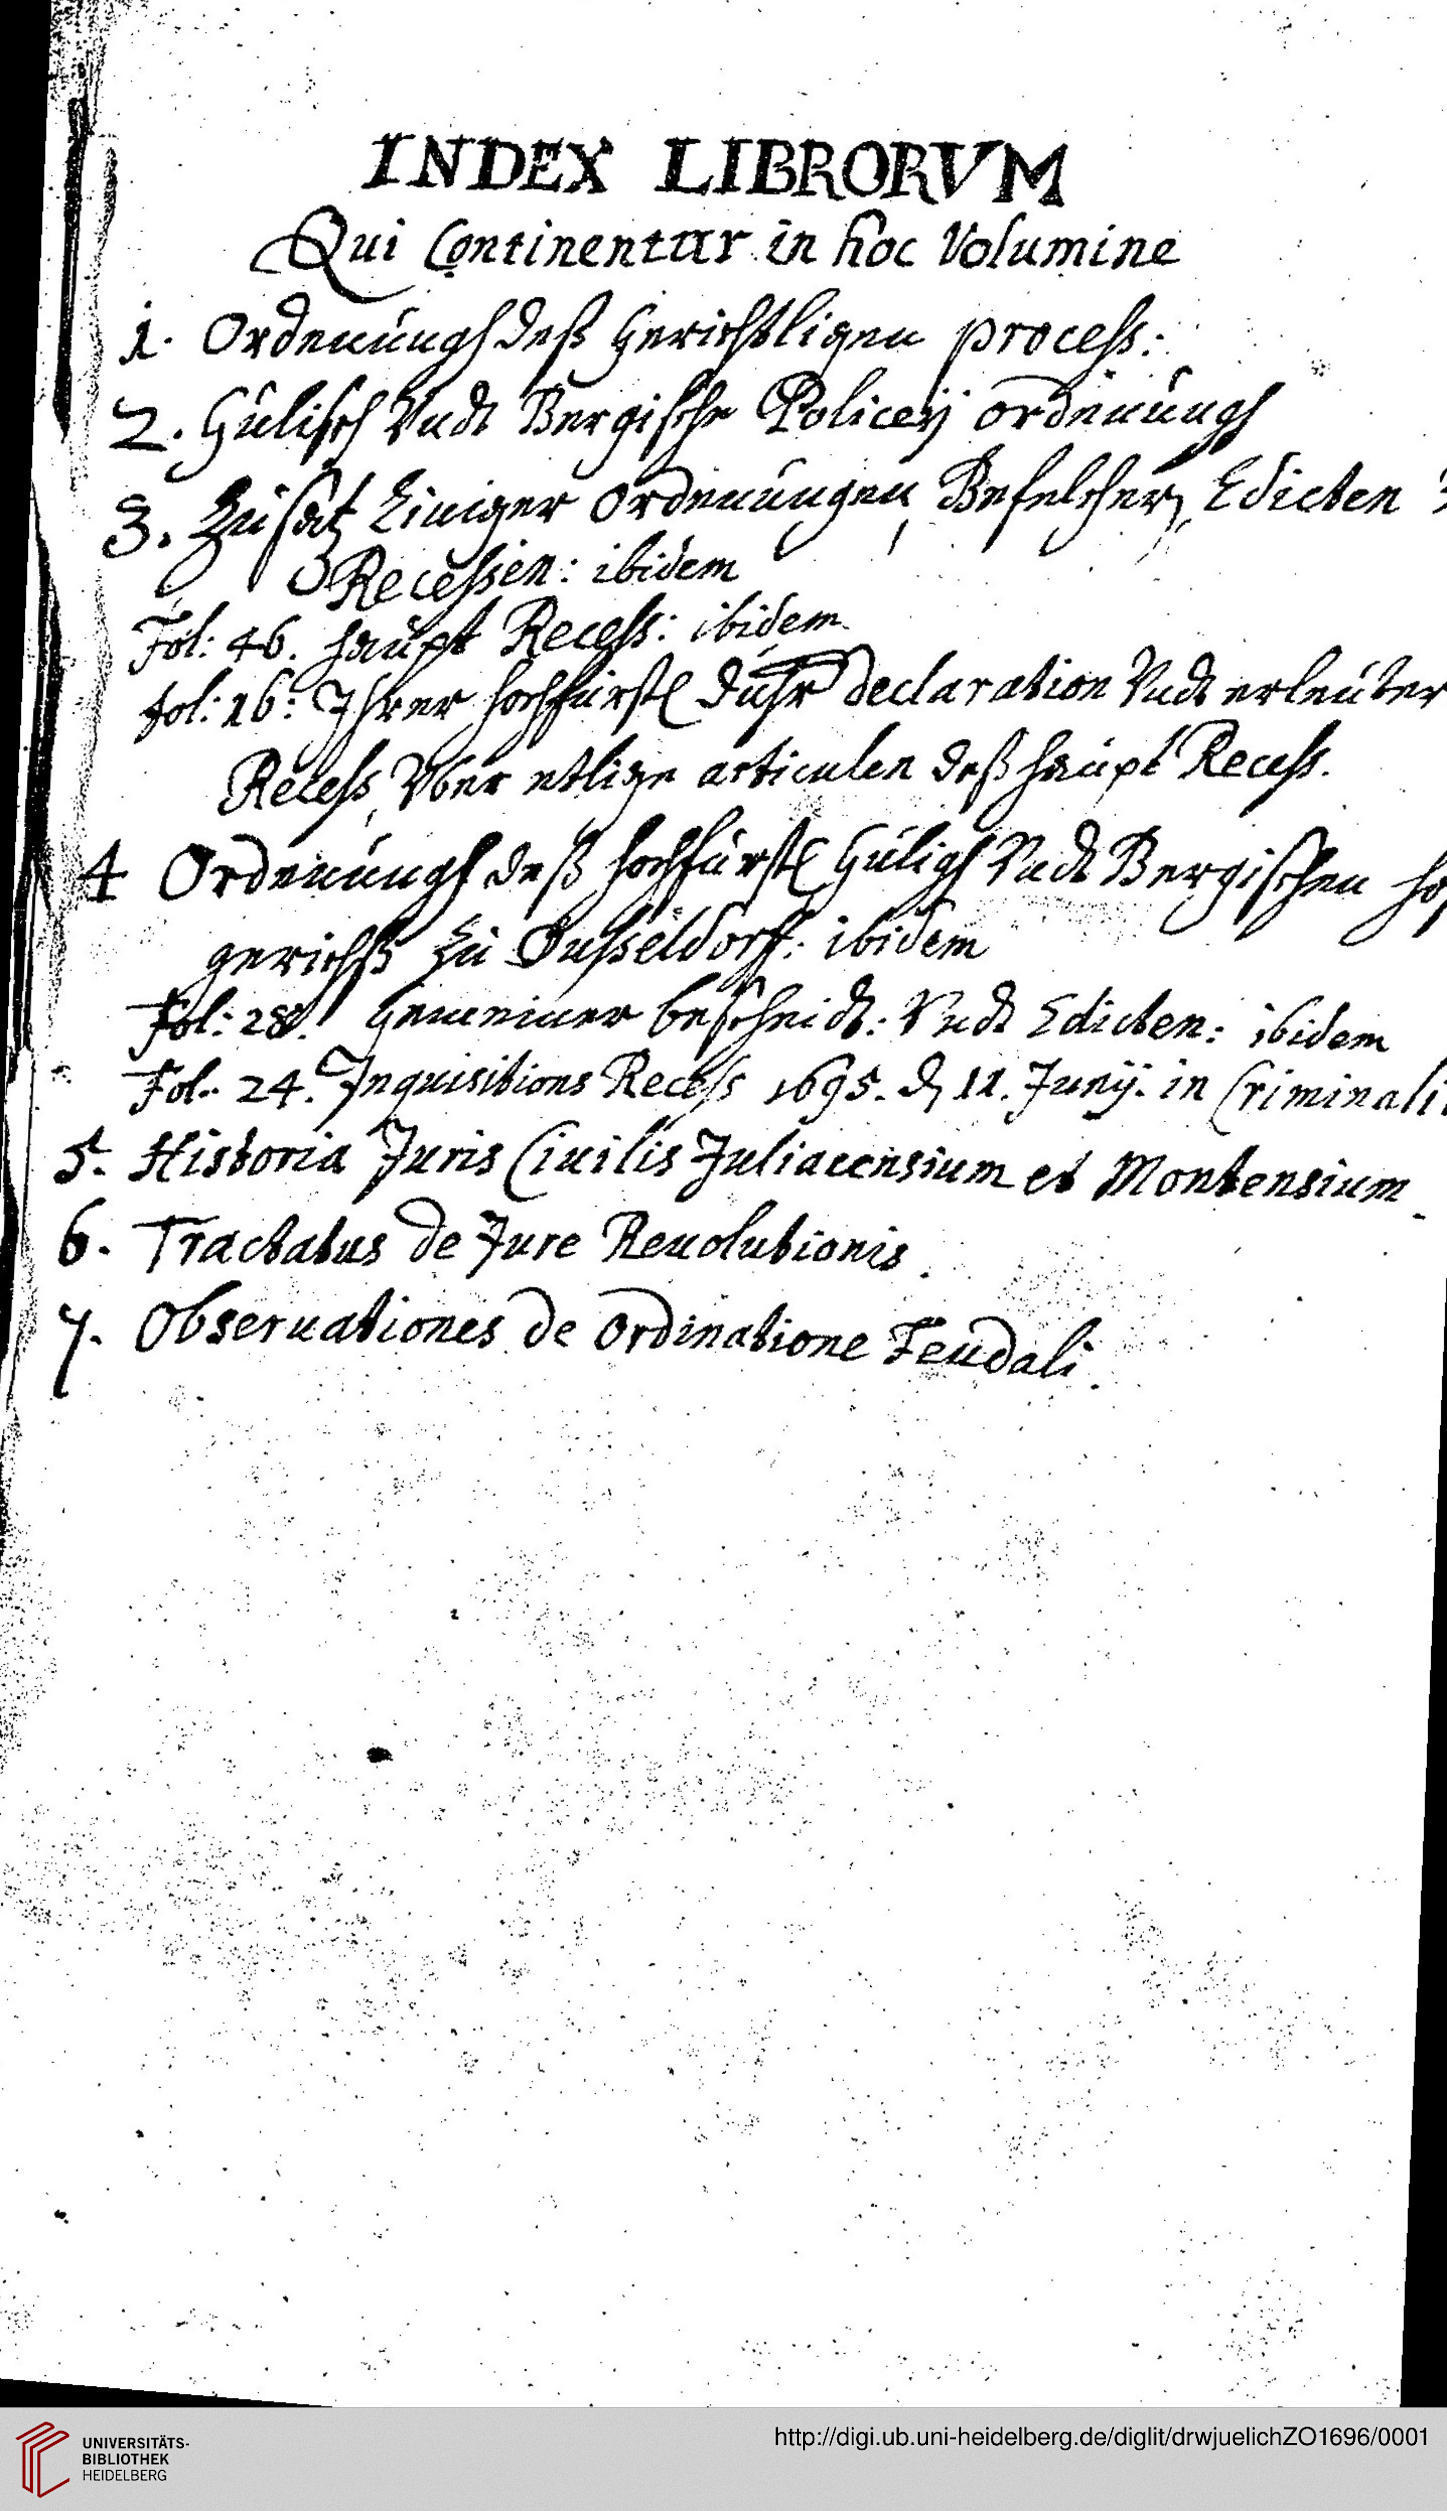 INDEX LIBRORVM
Qui Continentur in hoc Volumine
1. Ordenungh deß Gerichtligen process:
2. Gülisch Vndt Bergische Policeÿ ordenungh
3. Zusatz Einiger Ordenungen, Befelcher, Edicten
Recessen: ibidem
Fol: 46. haupt Recess: ibidem
fol: 16: Ihrer hochfürstl Duhr declaration Vndt erleuter
Recess, Vber etlige articulen deß haupt Recess.
4 Ordenungh deß hochfürstl Güligh Vndt Bergischen
gerichtß zu Dusseldorff: ibidem
Fol: 28. Gemeiner bescheidt: Vndt Edicten: ibidem
Fol. 24. Inquisitions Recess 1695. d 11. Junÿ. in
5. Historia Juris Ciuilis Juliacensium et Montensium.
6. Tractatus de Jure Reuolutionis.
7. Obseruationes de Ordinatione Feudali.
UNIVERSITÄTS-
BIBLIOTHEK
HEIDELBERG
http://digi.ub.uni-heidelberg.de/diglit/drwjuelichZO1696/0001